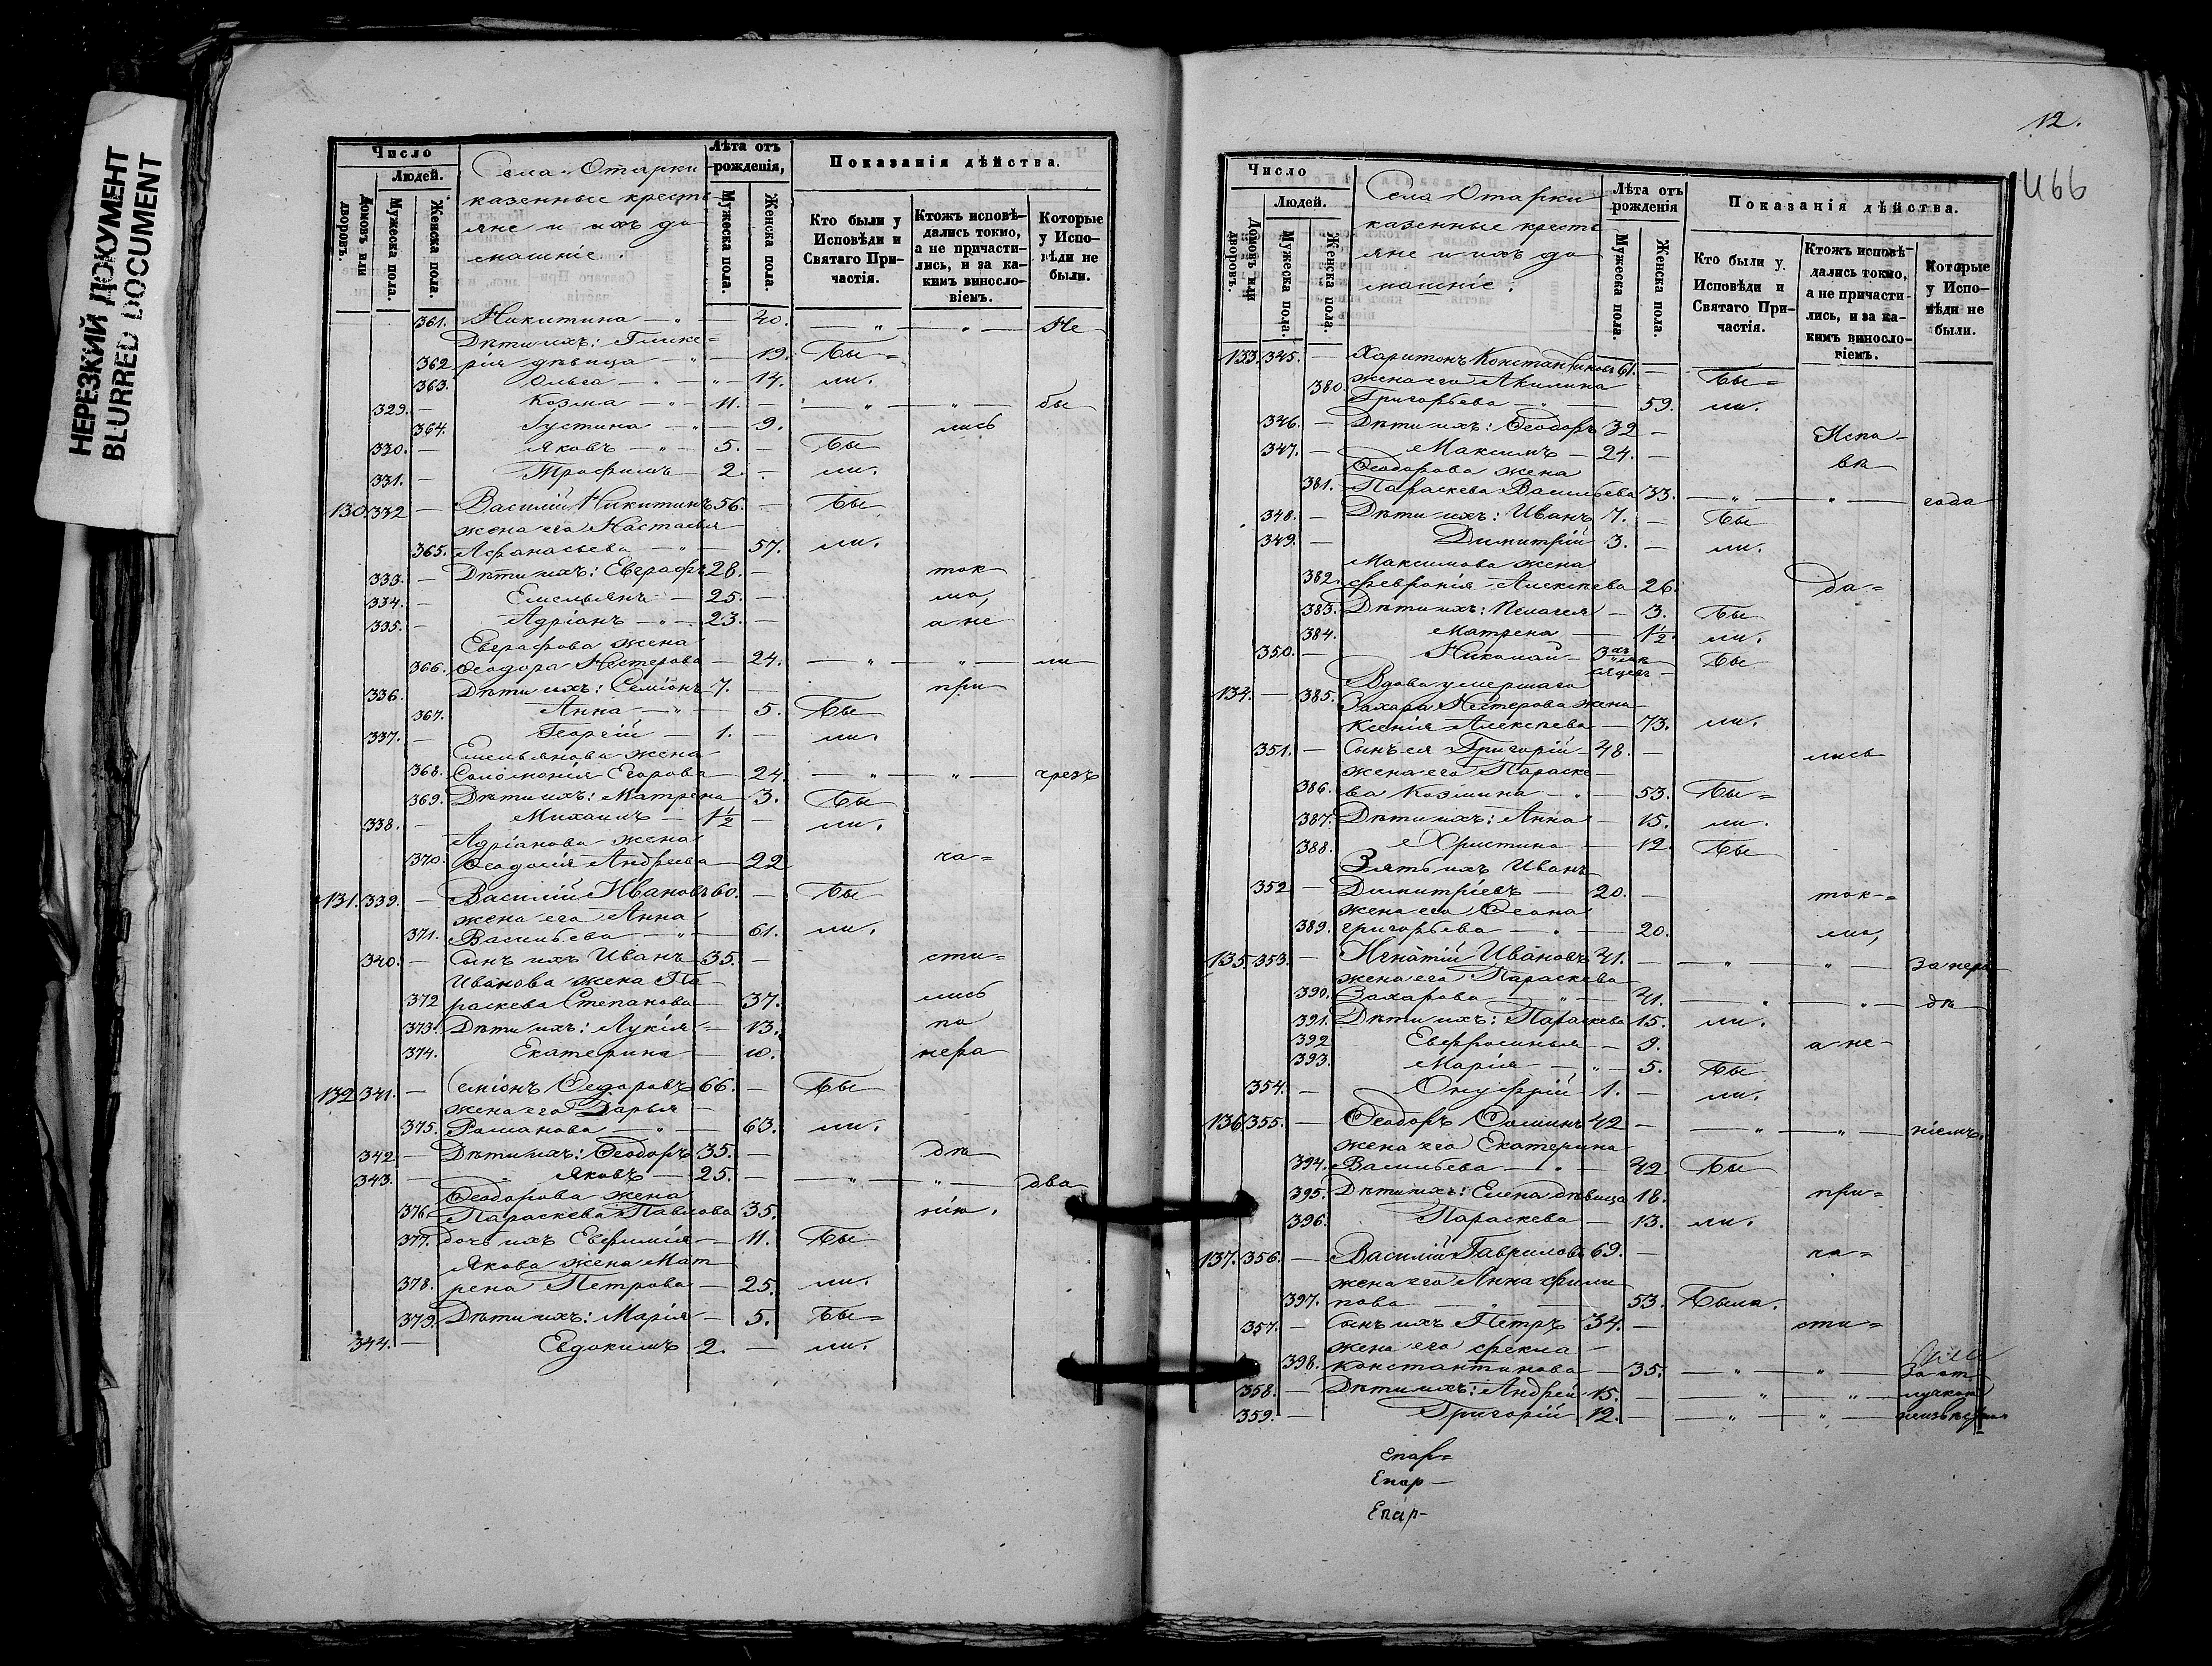 НЕРЕЗКИЙ ДОКУМЕНТ
BLURRED DOCUMENT
Число
Людей.
Домовъ или дворовъ.
Мужеска пола.
Женска пола.
Села Отарки
казенные кресть
яне и ихъ до
машніе.
Лѣта отъ рожденія,
Мужеска пола.
Женска пола.
Показанія дѣйства.
Кто были у Исповѣди и Святаго Причастія.
Ктожъ исповѣдались токмо, а не причастились, и за какимъ винословіемъ.
Которые у Исповѣди не были.
361. Никитина — 40. — „ — „ — Не
Дѣти ихъ: Глике=
362 рія дѣвица — „ — 19. Бы=
363. Ольга — „ — 14. ли.
329. — Козма — „ — 11. — „ — „ — бы
364. Іустина — „ — 9. лись
330. — Яковъ — „ — 5. — Бы
331. — Трофимъ — 2. — ли.
130. 332 — Василій Никитинъ 56. — Бы
жена его Настасья
365. Афанасьева — „ — 57. ли.
333. — Дѣти ихъ: Евграфъ 28. — ток
334. — Емельянъ — 25. — мо,
335. — Адріанъ — „ — 23. — а не
Евграфова жена
366. Ѳеодора Нестерова — 24. — „ — „ — ли
336. Дѣти ихъ: Семіонъ 7. — при
367. Анна — „ — 5. Бы
337. — Георгій — 1. — ли.
Емельянова жена
368. Соломонія Егорова — 24. — „ — „ — чрезъ
369. Дѣти ихъ: Матрена — 3. Бы
338. — Михаилъ — 1½ — ли.
Адріанова жена
370. Ѳеодосія Андреева — 22 ча=
131. 339. — Василій Ивановъ 60. — Бы
жена его Анна
371. Васильева — „ — 61. ли.
340. — Сынъ ихъ Иванъ 35. — сти=
Иванова жена Па-
372 раскева Степанова — 37. лись
373. Дѣти ихъ: Лукія — 13. по
374. Екатерина — 10. нера
132 341. — Семіонъ Ѳедоровъ 66. — Бы
жена его Дарья —
375. Романова — „ — 63. ли.
342 — Дѣти ихъ: Ѳеодоръ 35. — дѣ
343. — Яковъ — 25. — „ — „ — два
Ѳеодорова жена
376. Параскева Павлова 35. нію.
377. дочь ихъ Евфимія — 11. Бы
Якова жена Мат
378. рена Петрова — 25. ли.
379. Дѣти ихъ: Марія — 5. Бы=
344. — Евдокимъ 2. — ли.
12.
466
Число
Людей.
Домовъ или дворовъ.
Мужеска пола.
Женска пола.
Села Отарки
казенные кресть
яне и ихъ до
машніе.
Лѣта отъ рожденія
Мужеска пола.
Женска пола.
Показанія дѣйства.
Кто были у Исповѣди и Святаго Причастія.
Ктожъ исповѣдались токмо, а не причастились, и за какимъ винословіемъ.
Которые у Исповѣди не были.
133. 345. — Харитонъ Константиновъ 61. —
жена его Акилина Бы=
380. Григорьева — „ — 59. ли.
346. — Дѣти ихъ: Ѳеодоръ 32 — Испо-
347. — Максимъ — 24. — вѣ
Ѳеодорова жена
381. Параскева Васильева 33. — „ — „ — года
348. — Дѣти ихъ: Иванъ 7. — Бы
349. — Димитрій 3. — ли.
Максимова жена
382. Февронія Алексѣева 26. да=
383. Дѣти ихъ: Пелагея — 3. Бы
384. Матрена — 1½. ли.
350. — Николай — 3хъ мѣсяцевъ — Бы
Вдова умершаго
134. — 385. Захара Нестерова жена
Ксенія Алексѣева — 73. ли.
351. — Сынъ ея Григорій 48. — лись
жена его Параске-
386. ва Козмина — „ — 53. Бы=
387. Дѣти ихъ: Анна — 15. ли.
388. Христина — 12. Бы
Зять ихъ Иванъ
352 — Димитріевъ — 20. — ток=
жена его Ѳеона
389. Григорьева — „ — 20. мо,
135. 353. — Игнатій Ивановъ 41. — „ — „ — За нера
жена его Параскева
390. Захарова — „ — 41. — „ — „ — дѣ
391. Дѣти ихъ: Параскева 15. ли.
392 Евфросинья — 9. а не-
393. Марія — „ — 5. Бы
354. — Онуфрій 1. — ли.
136 355. — Ѳеодоръ Ѳоминъ 42 — „ — „ — ніемъ.
жена его Екатерина
394. Васильева — „ — 42. Бы
395. Дѣти ихъ: Елена дѣвица 18. при=
396. Параскева — 13. ли.
137. 356. — Василій Гавриловъ 69. — ча=
жена его Анна Фили
397. пова — „ — 53. Была.
357. — Сынъ ихъ Петръ 34. — сти=
жена его Фекла —
398. Константинова — 35. — „ — „ — За от
358. — Дѣти ихъ: Андрей 15. — „ — „ — лучкою
359. — Григорій 12. — „ — „ —
Епар=
Епар—
Епар-